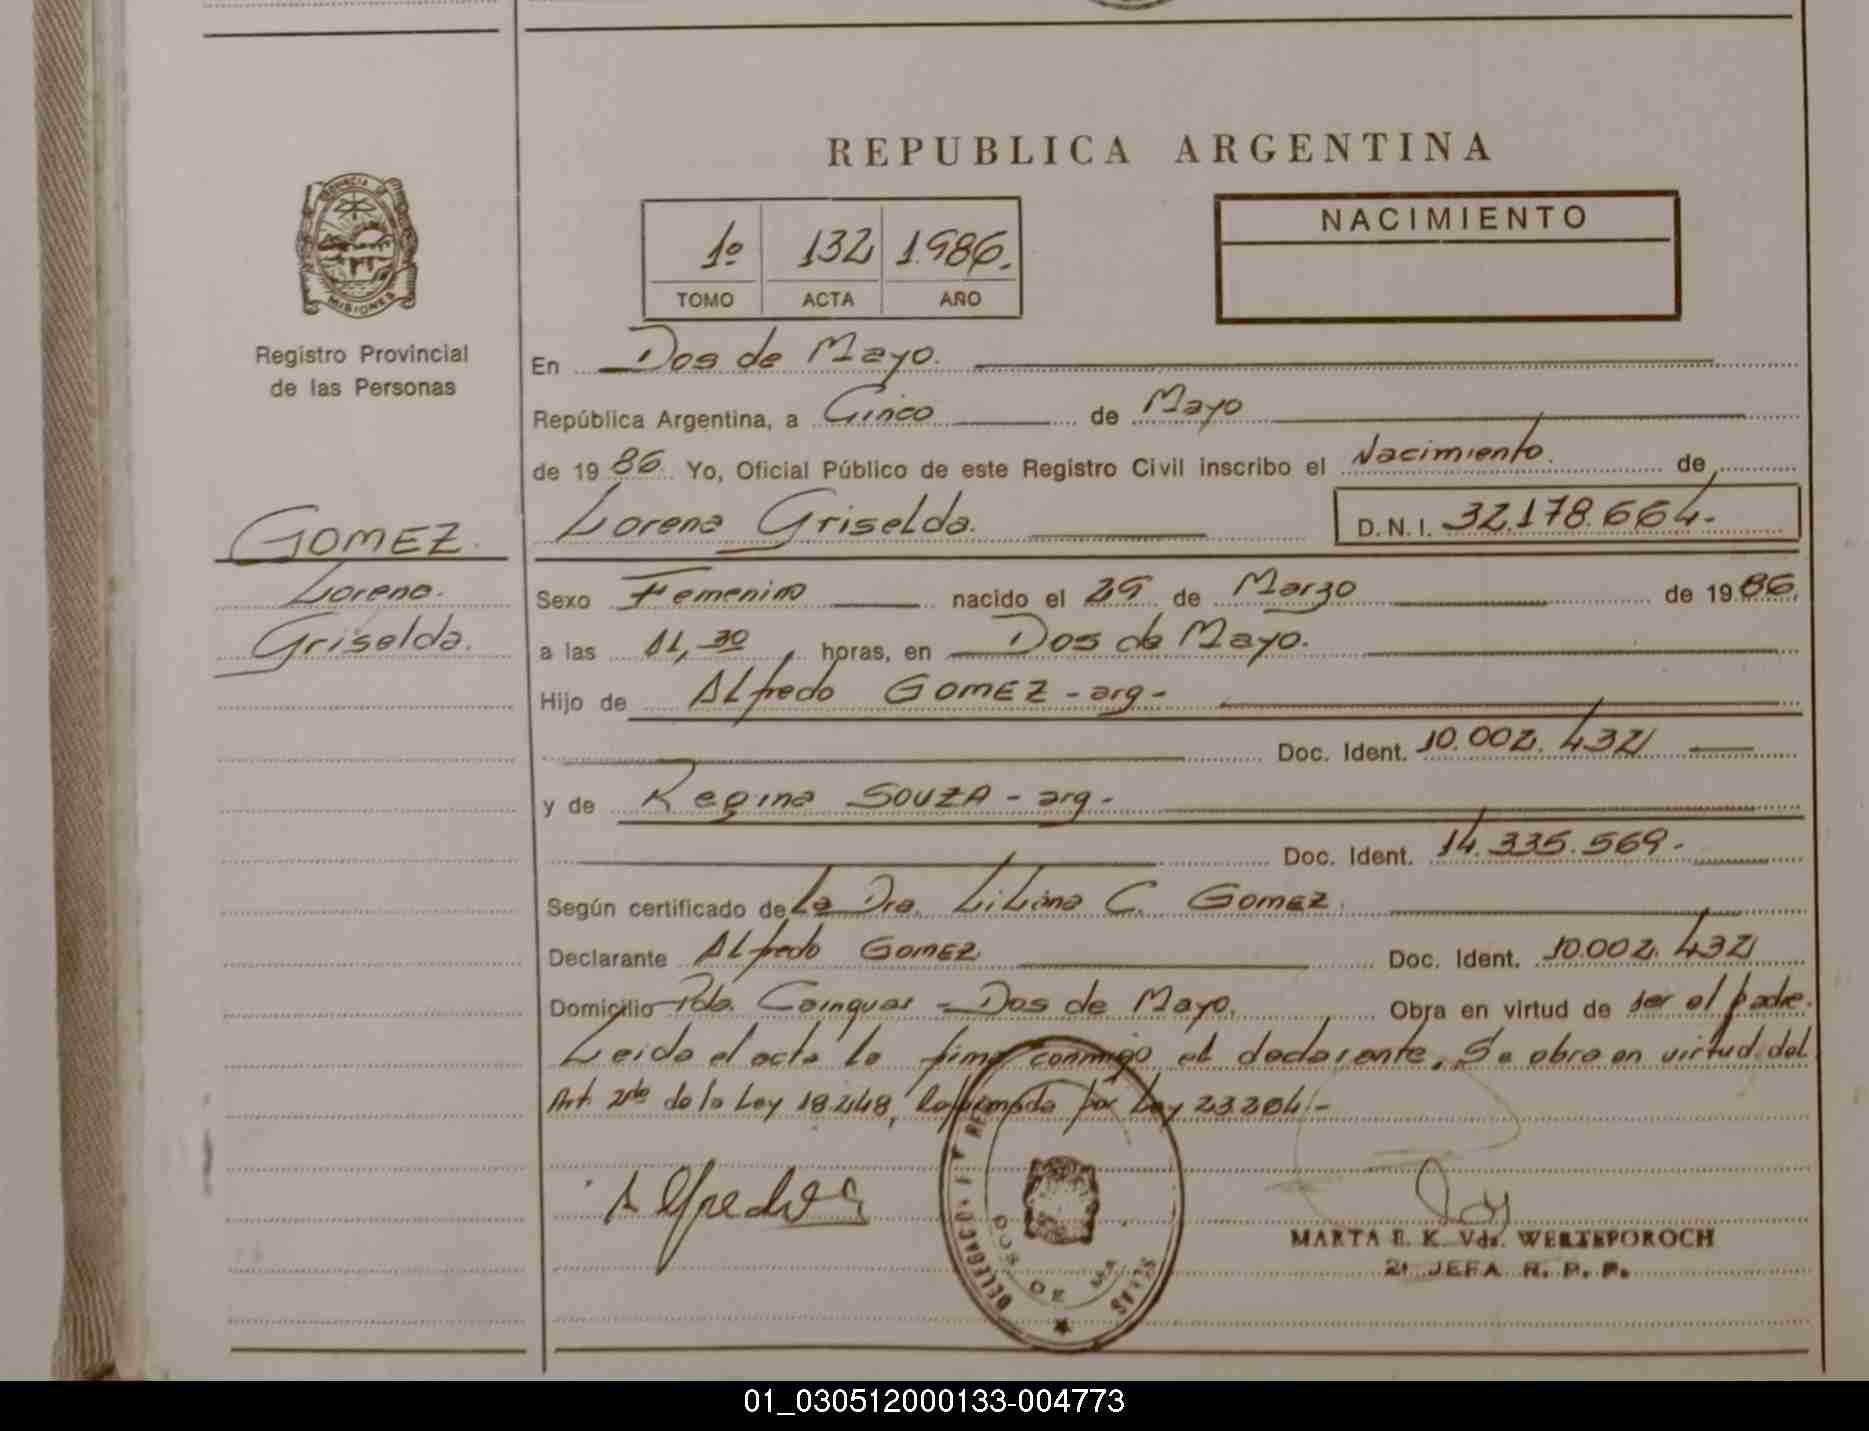 REPUBLICA ARGENTINA
PROVINCIA DE
MISIONES
Registro Provincial
de las Personas
1º 132 1.986.
TOMO ACTA AÑO
NACIMIENTO
En Dos de Mayo.
República Argentina, a Cinco de Mayo
de 1986 Yo, Oficial Público de este Registro Civil inscribo el Nacimiento. de
GOMEZ.
Lorena.
Griselda.
Lorena Griselda. D.N.I. 32.178.664.-
Sexo Femenino nacido el 29 de Marzo de 1986.
a las 11,30 horas, en Dos de Mayo.
Hijo de Alfredo GOMEZ - arg -
Doc. Ident. 10.002.432
y de Regina SOUZA - arg -
Doc. Ident. 14.335.569.-
Según certificado de la Dra. Liliana C. GOMEZ.
Declarante Alfredo GOMEZ Doc. Ident. 10.002.432
Domicilio Pdo. Cainguas - Dos de Mayo. Obra en virtud de ser el padre.
Leida el acta la firma conmigo el declarante. Se obra en virtud del
Art. 2do de la Ley 18.248, Reformada por Ley 23.264.-
Alfredo G
DELEGACIÓN
DOS DE MA
MARTA E. K. Vda. WERTEPOROCH
2º JEFA R. P. P.
01_030512000133-004773